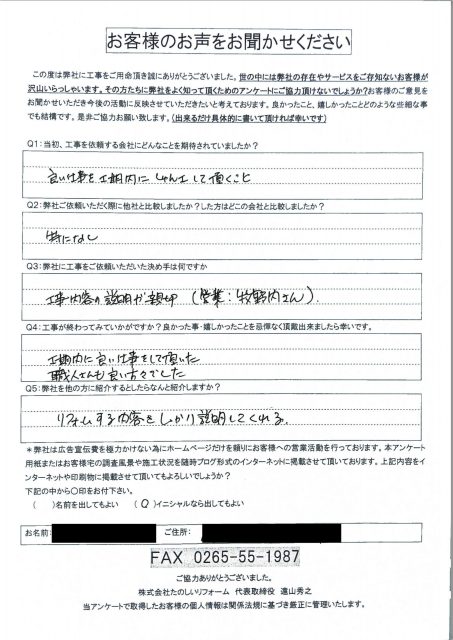 お客様のお声をお聞かせください
この度は弊社に工事をご用命頂き誠にありがとうございました。世の中には弊社の存在やサービスをご存知ないお客様が
沢山いらっしゃいます。その方たちに弊社をよく知って頂くためのアンケートにご協力頂けないでしょうか?お客様のご意見を
お聞かせいただき今後の活動に反映させていただきたいと考えております。良かったこと、嬉しかったことどのような些細な事
でも結構です。是非ご協力お願い致します。(出来るだけ具体的に書いて頂ければ幸いです)
Q1:当初、工事を依頼する会社にどんなことを期待されていましたか?
良い仕事を工期内にしゅん工して頂くこと
Q2:弊社ご依頼いただく際に他社と比較しましたか?した方はどこの会社と比較しましたか?
特になし
Q3:弊社に工事をご依頼いただいた決め手は何ですか
工事内容の説明が親切 (営業:牧野内さん).
Q4:工事が終わってみていかがですか?良かった事・嬉しかったことを忌憚なく頂戴出来ましたら幸いです。
工期内に良い仕事をして頂いた
職人さんも良い方々でした
Q5:弊社を他の方に紹介するとしたらなんと紹介しますか?
リフォームする内容をしっかり説明してくれる.
*弊社は広告宣伝費を極力かけない為にホームページだけを頼りにお客様への営業活動を行っております。本アンケート
用紙またはお客様宅の調査風景や施工状況を随時ブログ形式のインターネットに掲載させて頂いております。上記内容をイ
ンターネットや印刷物に掲載させて頂いてもよろしいでしょうか?
下記の中から〇印をお付け下さい。
( )名前を出してもよい (〇)イニシャルなら出してもよい
お名前: ご住所:
FAX 0265-55-1987
ご協力ありがとうございました。
株式会社たのしいリフォーム 代表取締役 遠山秀之
当アンケートで取得したお客様の個人情報は関係法規に基づき厳正に管理いたします。